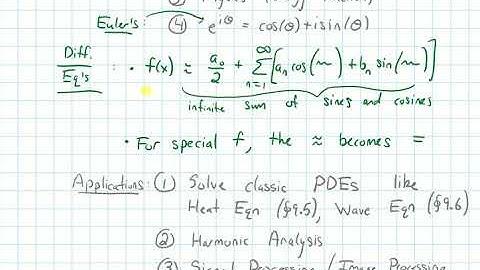 Euler's: ④ e^{iθ} = cos(θ)+isin(θ)
Diff. Eq's : • f(x) ≈ a₀/2 + ∑_{n=1}^{∞} [aₙcos(~) + bₙ sin(~)]
infinite sum of sines and cosines
• For special f, the ≈ becomes =
Applications: ① Solve classic PDEs like
Heat Eqn (§9.5), Wave Eqn (§9.6)
② Harmonic Analysis
③ Signal Processing / Image Processing